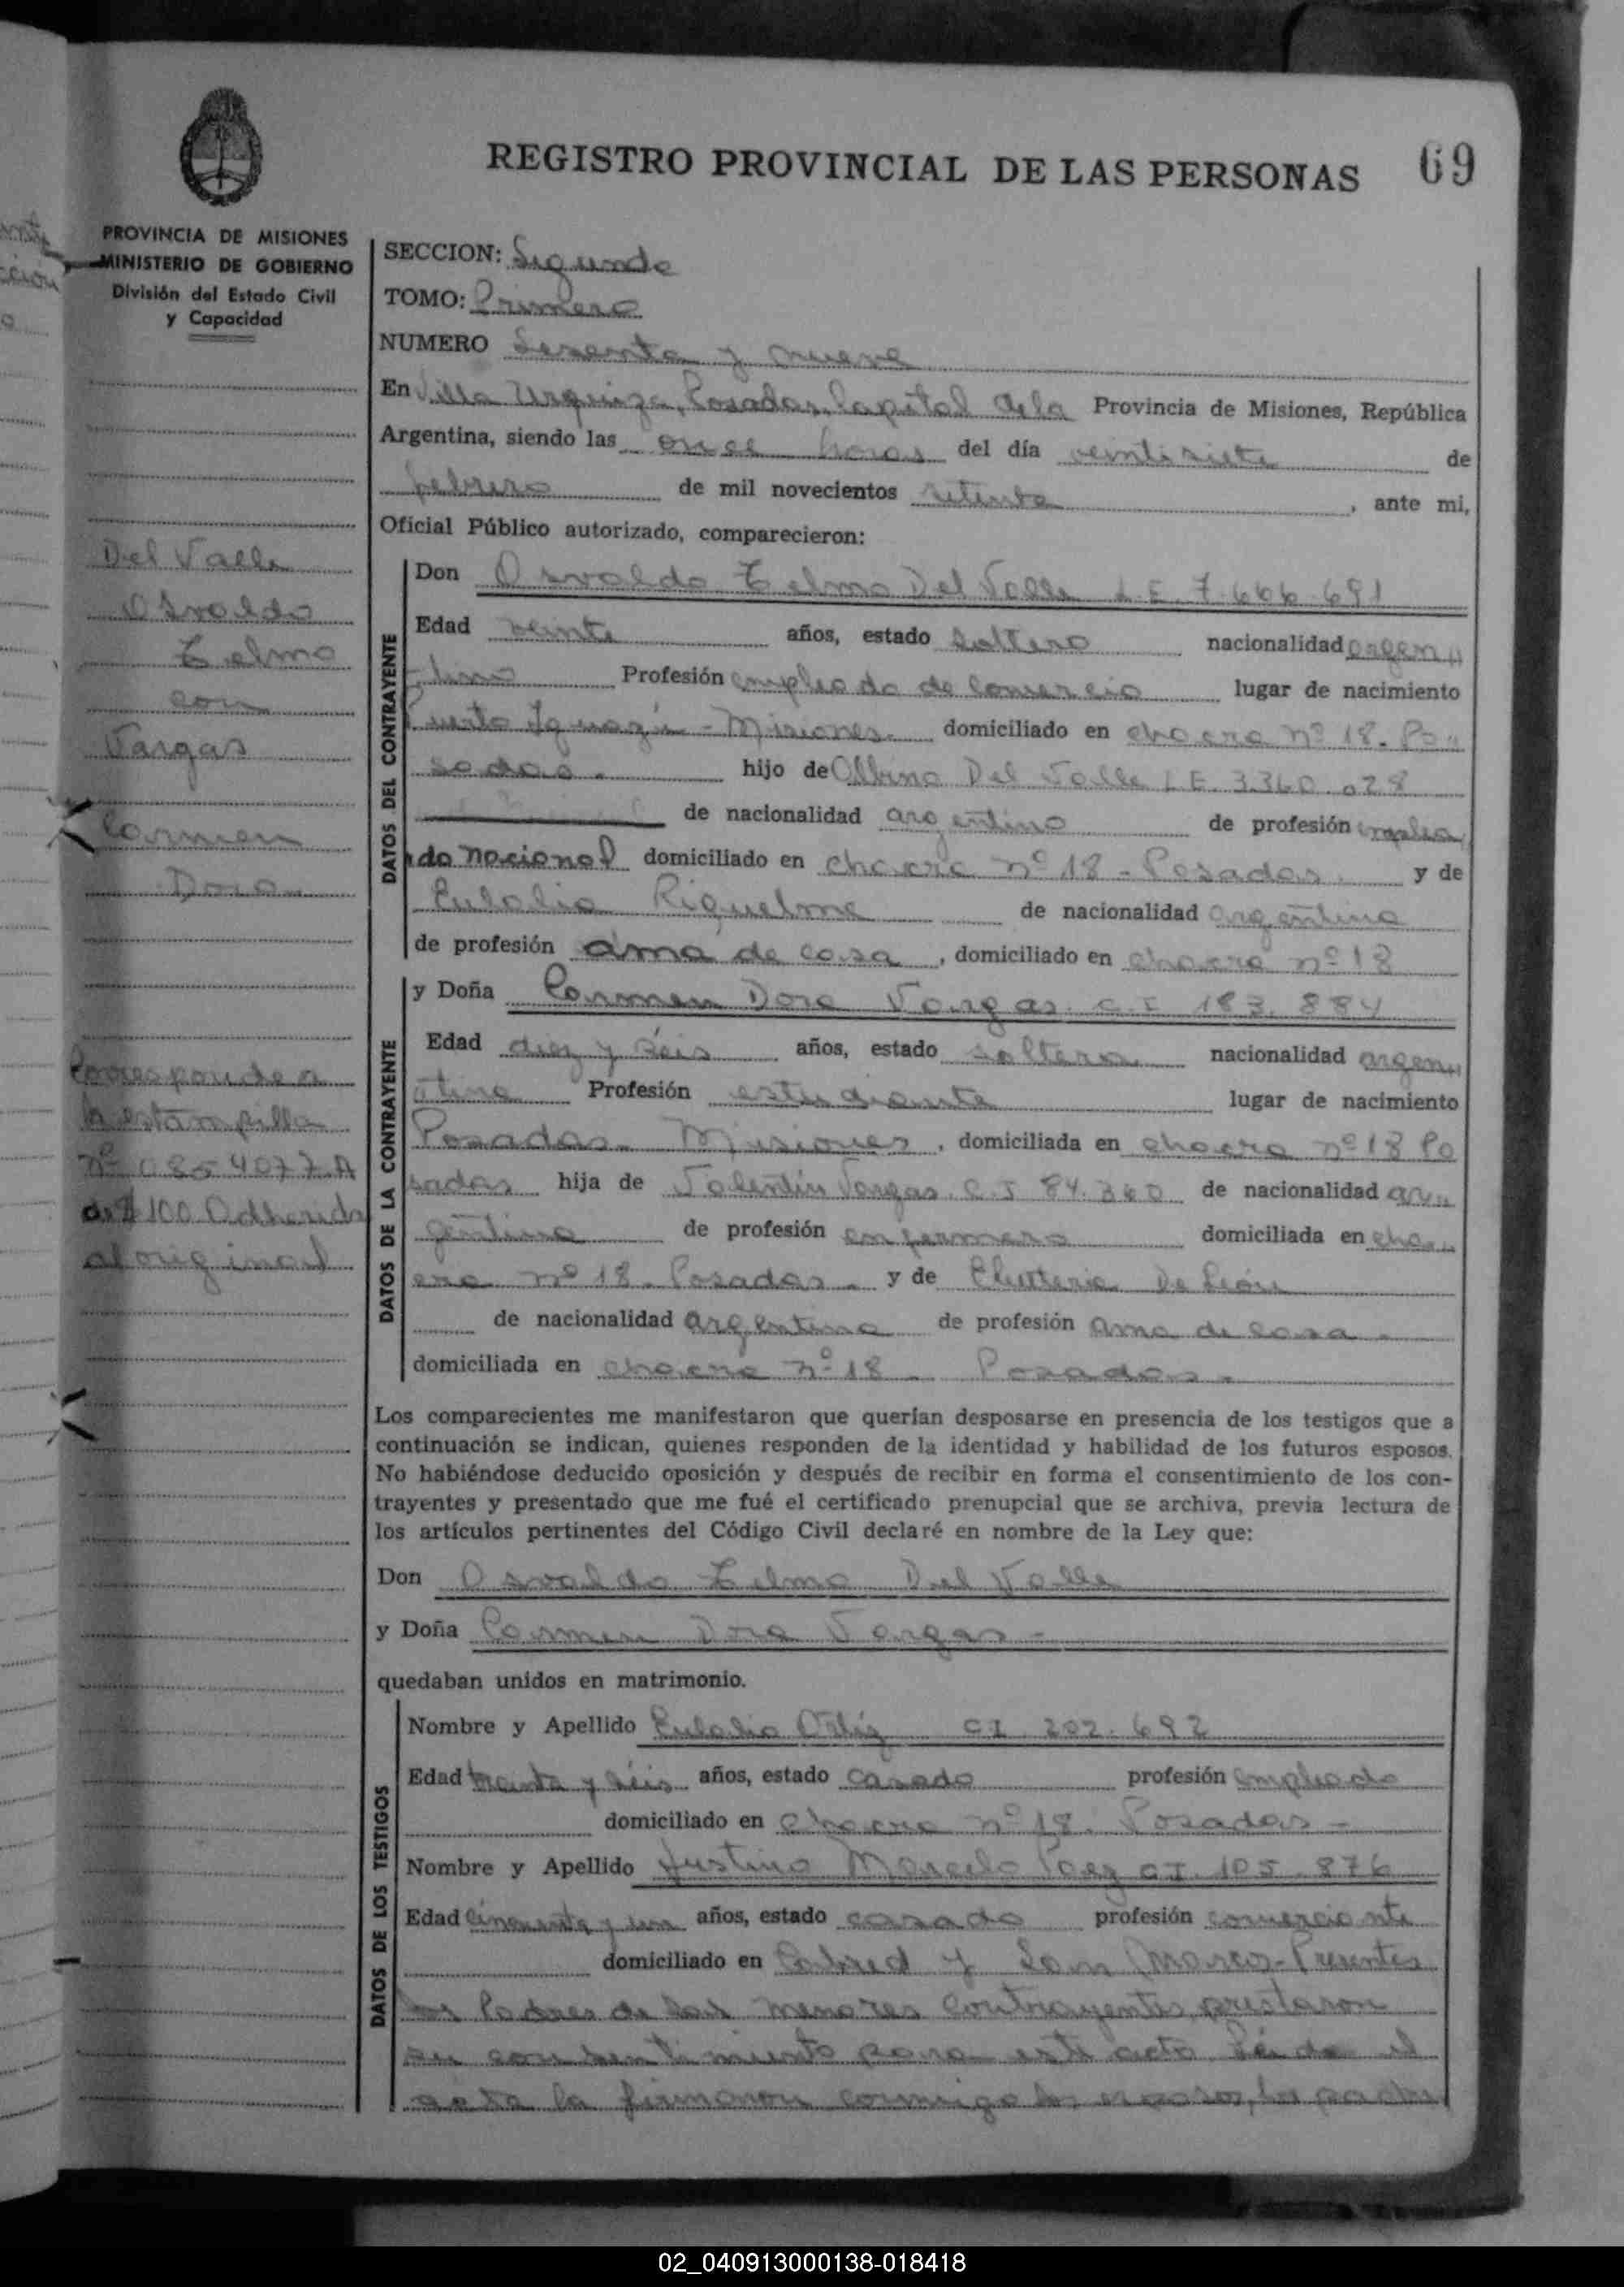 REGISTRO PROVINCIAL DE LAS PERSONAS 69
PROVINCIA DE MISIONES
MINISTERIO DE GOBIERNO
División del Estado Civil
y Capacidad
Del Valle
Osvaldo
Telmo
con
Vargas
Carmen
Dora
Corresponde a
la estampilla
nº 0854077 A
de $ 100 Adherida
al original
SECCION: Segunda
TOMO: Primero
NUMERO Sesenta y nueve
En Villa Urquiza, Posadas, Capital de la Provincia de Misiones, República
Argentina, siendo las once horas del día veintisiete de
febrero de mil novecientos setenta, ante mi,
Oficial Público autorizado, comparecieron:
DATOS DEL CONTRAYENTE
Don Osvaldo Telmo Del Valle L.E. 7.666.691
Edad veinte años, estado soltero nacionalidad argen
tino Profesión empleado de comercio lugar de nacimiento
Puerto Iguazú - Misiones. domiciliado en chacra nº 18. Po
sadas. hijo de Albino Del Valle L.E. 3.360.028
de nacionalidad argentino de profesión emplea
do nacional domiciliado en chacra nº 18 - Posadas. y de
Eulalia Riquelme de nacionalidad argentina
de profesión ama de casa, domiciliado en chacra nº 18
DATOS DE LA CONTRAYENTE
y Doña Carmen Dora Vargas. C.I. 183.884
Edad diez y séis años, estado soltera nacionalidad argen
tina Profesión estudiante lugar de nacimiento
Posadas - Misiones, domiciliada en chacra nº 18 Po
sadas hija de Valentín Vargas. C.I 84.360 de nacionalidad ar
gentina de profesión enfermero domiciliada en cha
cra nº 18. Posadas. y de Eleuteria De León
de nacionalidad argentina de profesión ama de casa.
domiciliada en chacra nº 18. Posadas.
Los comparecientes me manifestaron que querían desposarse en presencia de los testigos que a
continuación se indican, quienes responden de la identidad y habilidad de los futuros esposos.
No habiéndose deducido oposición y después de recibir en forma el consentimiento de los con-
trayentes y presentado que me fué el certificado prenupcial que se archiva, previa lectura de
los artículos pertinentes del Código Civil declaré en nombre de la Ley que:
Don Osvaldo Telmo Del Valle
y Doña Carmen Dora Vargas -
quedaban unidos en matrimonio.
DATOS DE LOS TESTIGOS
Nombre y Apellido Eulalio Ortíz C.I. 202.692
Edad treinta y séis años, estado casado profesión empleado
domiciliado en chacra nº 18. Posadas -
Nombre y Apellido Justino Marcelo Paez C.I. 105.876
Edad cincuenta y un años, estado casado profesión comerciante
domiciliado en Cabred y San Marcos - Presentes
los Padres de los menores contrayentes, prestaron
su consentimiento para este acto. Leída el
acta la firmaron conmigo los esposos, los padres
02_040913000138-018418